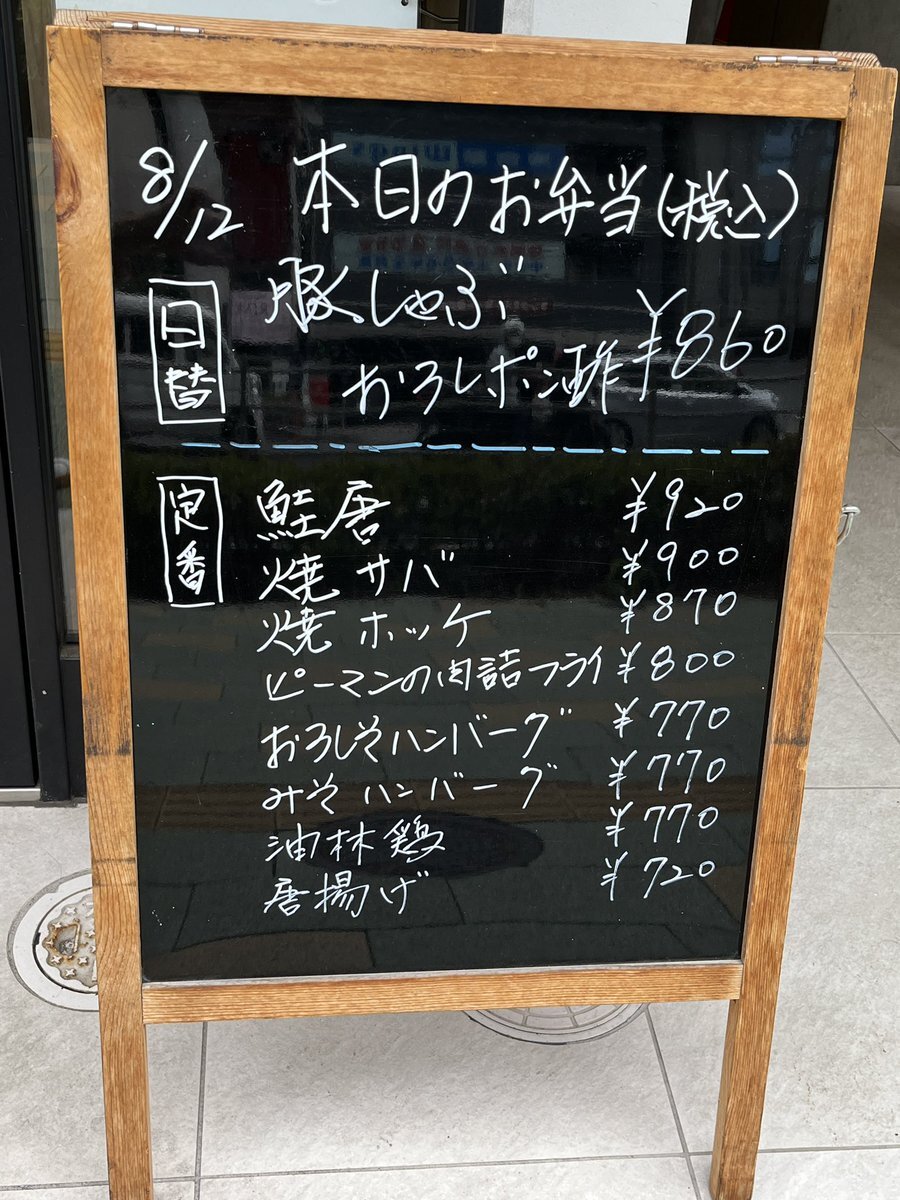 8/12 本日のお弁当(税込)
日替
豚しゃぶ
おろしポン酢 ¥860
定番
鮭唐 ¥920
焼サバ ¥900
焼ホッケ ¥870
ピーマンの肉詰フライ ¥800
おろしそハンバーグ ¥770
みそハンバーグ ¥770
油林鶏 ¥770
唐揚げ ¥720